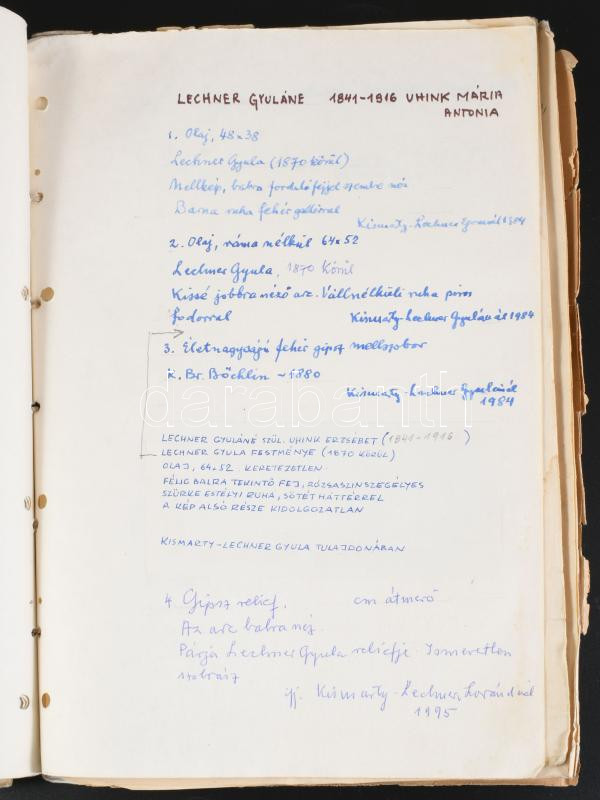 LECHNER GYULÁNE 1841-1916 UHINK MÁRIA
ANTONIA
1. Olaj, 48x38
Lechner Gyula (1870 körül)
Mellkép, balra forduló fejjel szembe néz
Barna ruha fehér gallérral
Kismarty-Lechner Gyuánál 1984
2. Olaj, ráma nélkül 64x52
Lechner Gyula, 1870 Körül
Kissé jobbra néző arc. Vállnélküli ruha piros
fodorral Kismarty-Lechner Gyuánál 1984
3. Életnagyságú fehér gipsz mellszobor
K. Br. Böcklin ~1880
Kismarty-Lechner Gyulánál
1984
darabanth
LECHNER GYULÁNE SZÜL. UHINK ERZSÉBET (1841-1916)
LECHNER GYULA FESTMÉNYE (1870 KÖRÜL)
OLAJ, 64x52 KERETEZETLEN
FÉLIG BALRA TEKINTŐ FEJ, RÓZSASZINSZEGÉLYES
SZÜRKE ESTÉLYI RUHA, SÖTÉT HÁTTÉRREL
A KÉP ALSÓ RÉSZE KIDOLGOZATLAN
KISMARTY-LECHNER GYULA TULAJDONÁBAN
4. Gipsz relief, cm átmérő
Az arc balra néz.
Párja Lechner Gyula reliefje. Ismeretlen
szobrász
ifj. Kismarty-Lechner Lorándnál
1995